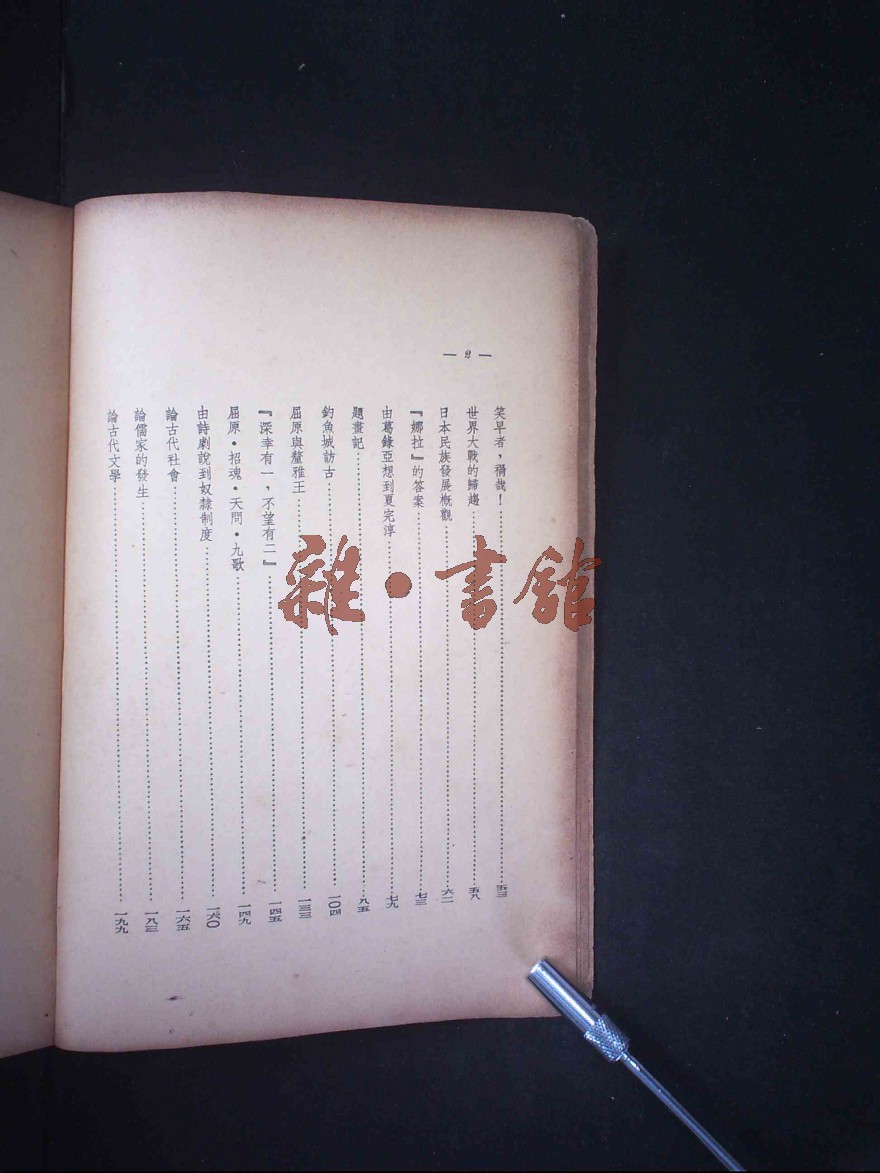 — 2 —
笑早者，禍哉！…………五三
世界大戰的歸趨…………五八
日本民族發展概觀…………六二
『娜拉』的答案…………七三
由葛錄亞想到夏完淳…………七九
題畫記…………八五
釣魚城訪古…………一〇四
屈原與釐雅王…………一三三
『深幸有一，不望有二』…………一四五
屈原・招魂・天問・九歌…………一四九
由詩劇說到奴隸制度…………一六〇
論古代社會…………一六五
論儒家的發生…………一八三
論古代文學…………一九九
雜・書館